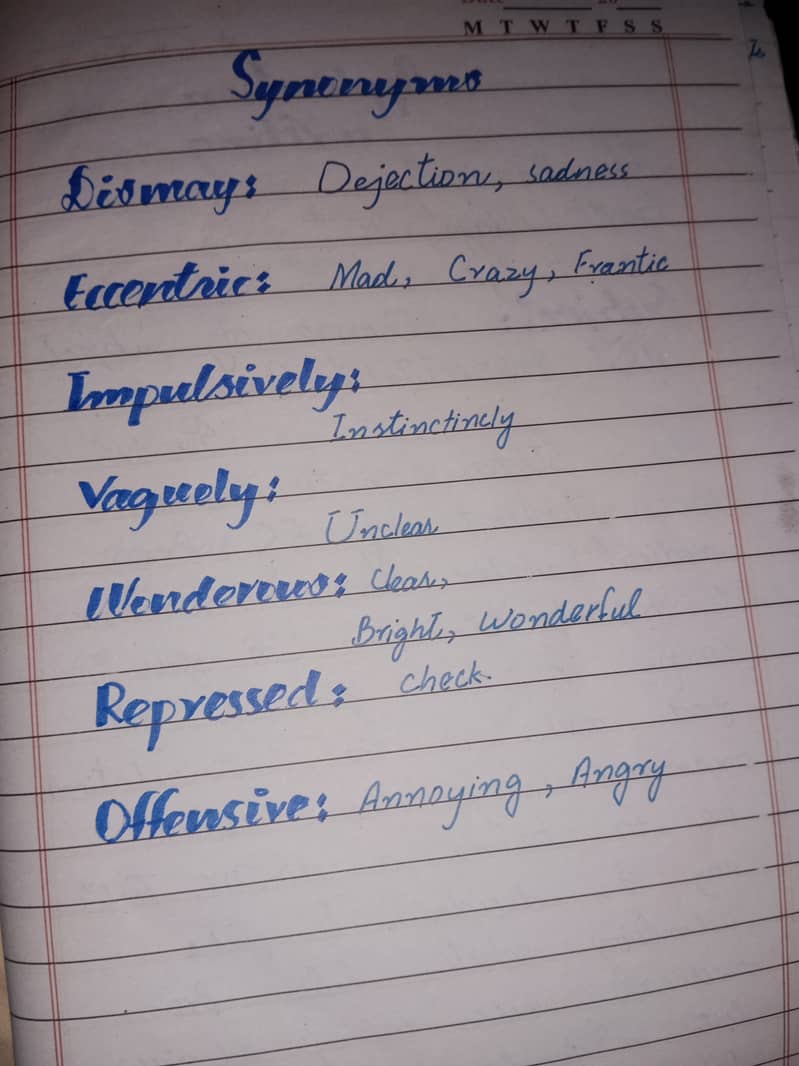 M T W T F S S
Synonyms
Dismay: Dejection, sadness
Eccentric: Mad, Crazy, Frantic
Impulsively:
Instinctincly
Vaguely:
Unclear
Wonderous: Clear,
Bright, Wonderful
Repressed: check.
Offensive: Annoying, Angry